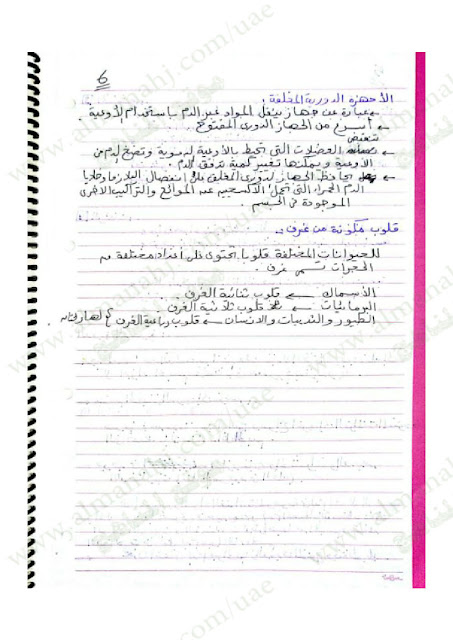 6
الأجهزة الدورية المغلقة:
عبارة عن جهاز ينقل المواد عبر الدم باستخدام الأوعية.
أسرع من الجهاز الدوري المفتوح.
تنقبض
العضلات التي تحيط بالأوعية الدموية وتضخ الدم من
الأوعية ويمكنها تغيير كمية تدفق الدم.
يحافظ الجهاز الدوري المغلق على انفصال البلازما وخلايا
الدم الحمراء التي تحمل الأكسجين عن الموائع والتراكيب الأخرى
الموجودة في الجسم.
قلوب مكونة من غرف:
للحيوانات المختلفة قلوبا تحتوي على أعداد مختلفة من
الحجرات تسمى غرف.
الأسماك ← قلوب ثنائية الغرف
البرمائيات ← قلوب ثلاثية الغرف
الطيور والثدييات والانسان ← قلوب رباعية الغرف
www.almanahj.com/uae
موقع المناهج